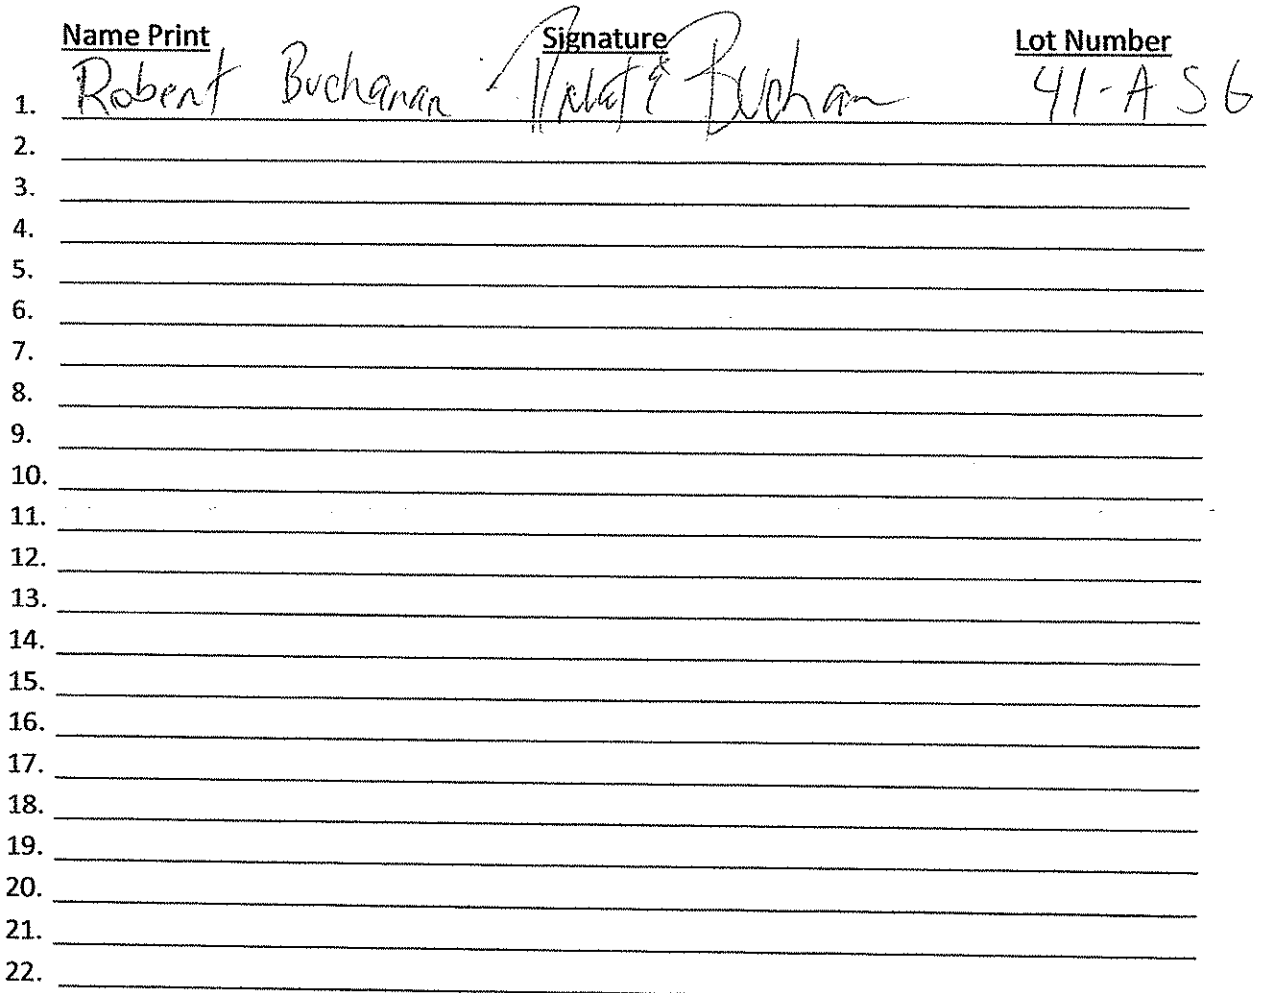 Name Print Signature Lot Number
1. Robert Buchanan Robert Buchanan 41-A SG
2.
3.
4.
5.
6.
7.
8.
9.
10.
11.
12.
13.
14.
15.
16.
17.
18.
19.
20.
21.
22.